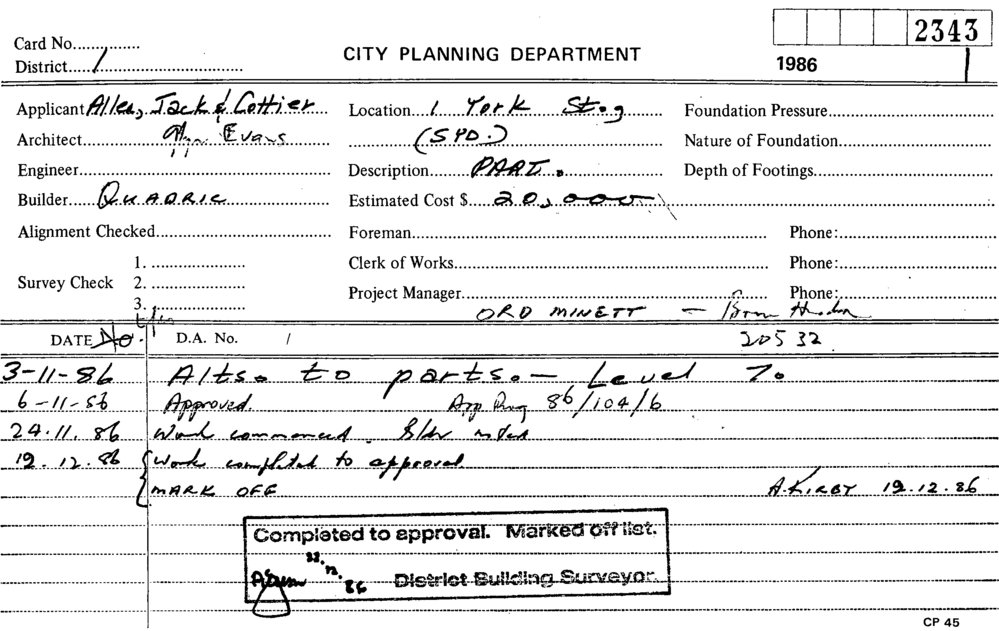 Card No...............
2343
District...../..............................
CITY PLANNING DEPARTMENT
1986
1
Applicant Allen, Jack & Cottier
Location....1 York St.,
Foundation Pressure
Architect Glyn Evans
(SYD.)
Nature of Foundation
Engineer
Description PART.
Depth of Footings
Builder QUADRIC
Estimated Cost $ 20,000
Alignment Checked
Foreman
Phone:
Survey Check
1.
2.
3.
Clerk of Works
Phone:
Project Manager
Phone:
ORD MINETT —
DATE No.
D.A. No. /
20532
3-11-86 Alts. to parts. — Level 7.
6-11-86 Approved. App Dwg 86/104/6
24.11.86 Work commenced. noted
19.12.86 Work completed to approval
MARK OFF A. KIRBY 19.12.86
Completed to approval. Marked off list.
22.12.86 District Building Surveyor.
CP 45